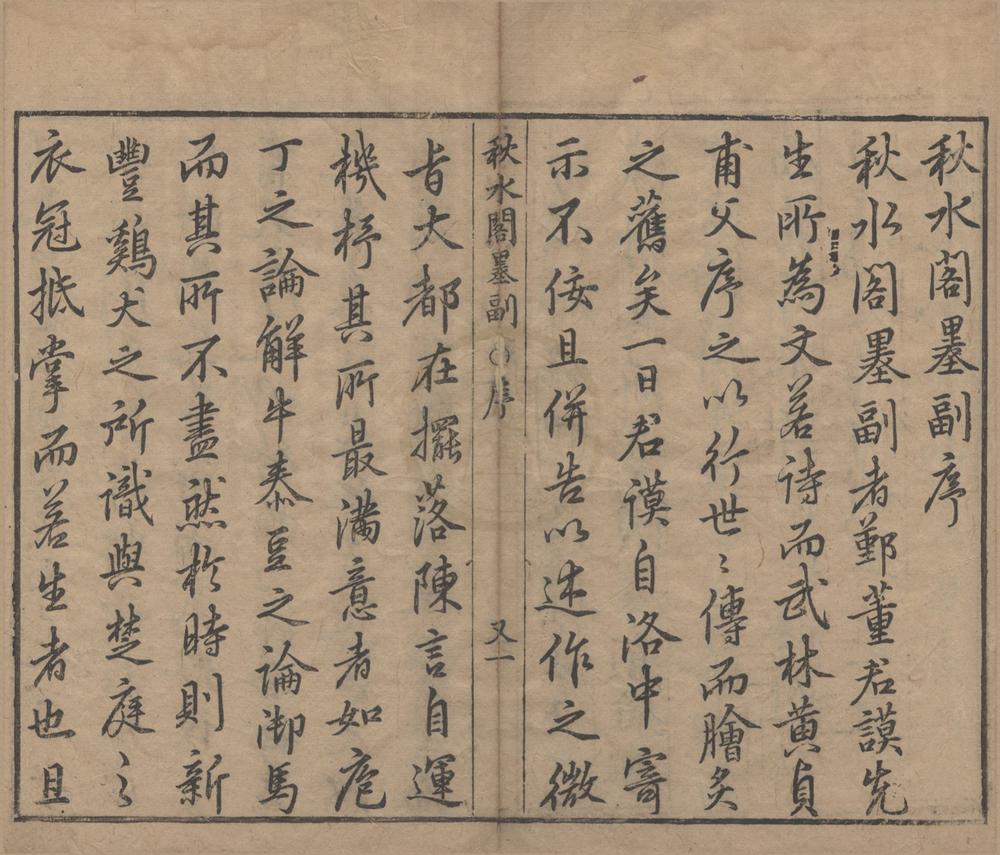 秋水閣墨副序
秋水閣墨副者鄞董君謨先
生所為文若詩而武林黄貞
甫父序之以行世〻傳而膾炙
之舊矣一日君謨自洛中寄
示不佞且併告以述作之微
秋水閣墨副〇序 又一
旨大都在擺落陳言自運
機杼其所最滿意者如庖
丁之論解牛泰豆之論御馬
而其所不盡然於時則新
豐鷄犬之所識與楚庭〻
衣冠抵掌而若生者也且